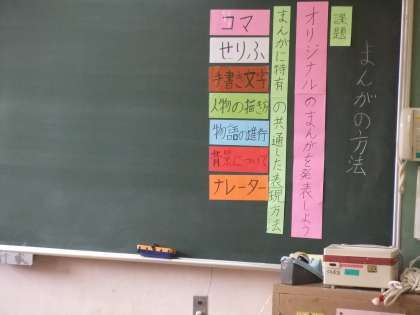 まんがの方法
課題
オリジナルのまんがを発表しよう
まんがに特有の共通した表現方法
コマ
せりふ
手書き文字
人物の描き分
物語の進行
背景について
ナレーター